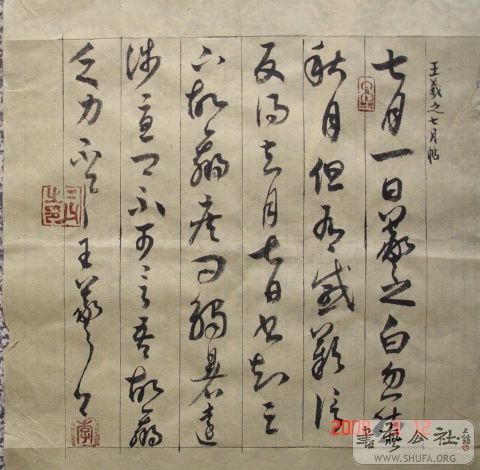 王羲之七月帖
七月一日羲之白忽然
秋月但有感歎信
反得去月七日書知足
下故羸疾問觸暑遠
涉憂卿不可言吾故羸
乏力不具王羲之白
書藝公社
WWW.SHUFA.ORG